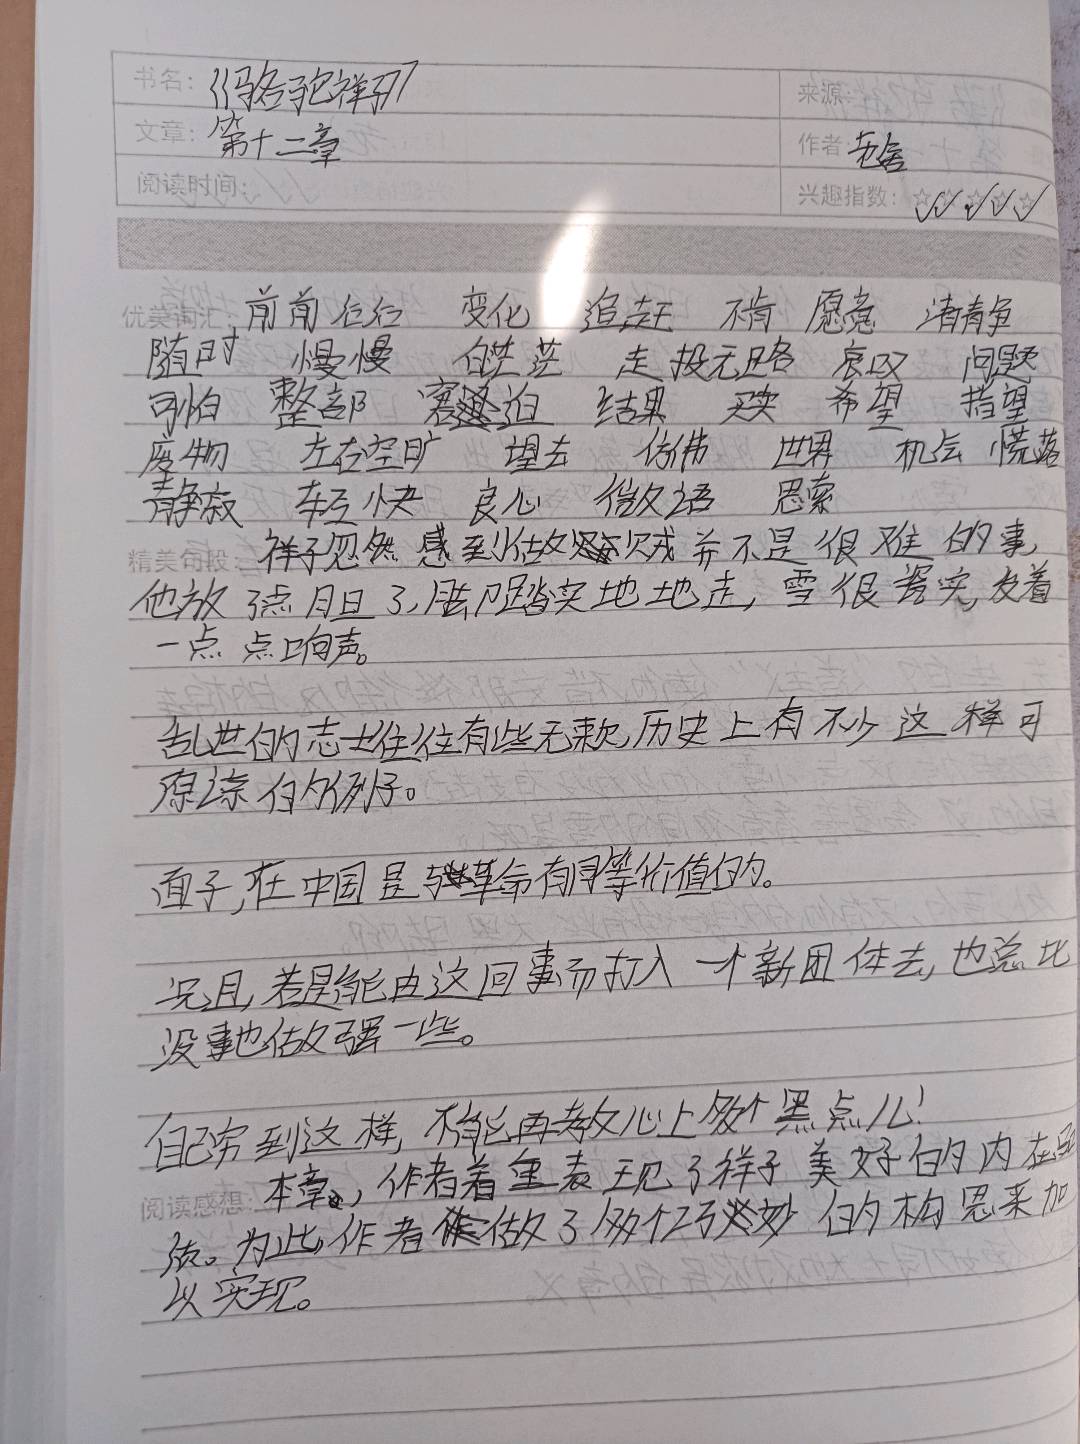 书名：《骆驼祥子》 来源：
文章：第十二章 作者 老舍
阅读时间： 兴趣指数：☆☆☆☆☆
优美词汇：前前后后 变化 追赶 不肯 愿意 清静
随时 慢慢 白茫茫 走投无路 哀叹 问题
可怕 整部 窘迫 结果 买卖 希望 指望
废物 左右空旷 望去 仿佛 世界 机会 慌落
静寂 轻快 良心 微语 思索
精美句段：祥子忽然感到做贼并不是很难的事，
他放了点胆子，脚踏实地地走，雪很瓷实，发着
一点点响声。
乱世的志士往往有些无赖，历史上有不少这样可
原谅的例子。
面子，在中国是与革命有同等价值的。
况且，若是能由这回事而打入一个新团体去，也总比
没事也做强一些。
自己穷到这样，不能再教心上多个黑点儿！
阅读感想：本章，作者着重表现了祥子美好的内在品
质。为此，作者做了多个巧妙的构思来加
以实现。